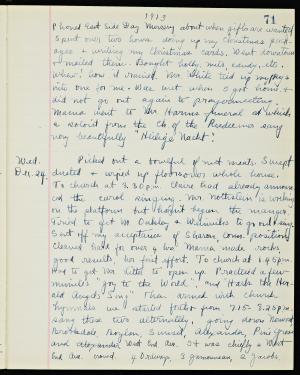 1913
71
Phoned East Side Day Nursery about when gifts are wanted
Spent over two hours doing up my Christmas pack-
ages & writing my Christmas cards. West downtown
& mailed them. Bought holly, nuts, candy, etc.
Whew! how it rained. Mr. White tied up my pkgs
into one for me. Was wet when I got home &
did not go out again to prayermeeting.
Mama went to Mr. Harms funeral at which
a soloist from the Ch of the Redeemer sang
very beautifully "Heilige Nacht".
Wed.
Dec. 24.
Picked out a bowlful of nut meats. Swept
dusted & wiped up floors over whole house.
To church at 3.30 p.m. Claire had already announ
ced the carol singing. Mr. is working
on the platform but hasn't begun the manger
Tried to get Mr. Oakley & to go
Sent off my acceptance of Sharon, Conn. Position
Cleared hard for over 4 hrs. Mama made rocks
good results, her first effort. To church at 6.45 pm.
Had to get Mr. to open up. Practised a few
minutes "Joy to the World", and "Hark the Her-
ald Angels Sing". Then armed with church
hymnals we started forth from 7.15 - 8.35 p.m.
sang these two alternately, going down Howard
Brooksdale, Boylan, Sunset, Alexandria, Pine Grove
and Alexander, West End Ave. It was chiefly a West
End Ave. crowd. 4 2 2 Jacobs.